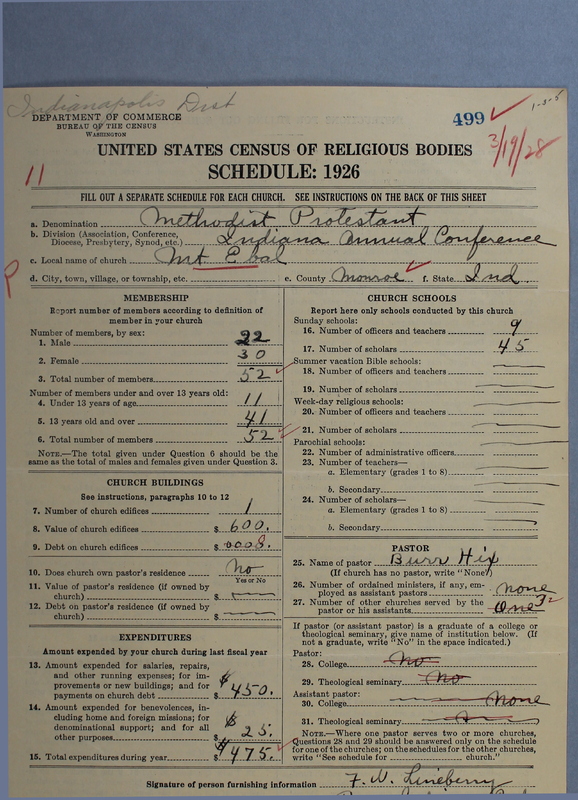 Indianapolis Dist
1-3-5
DEPARTMENT OF COMMERCE
BUREAU OF THE CENSUS
WASHINGTON
499
3/19/28
UNITED STATES CENSUS OF RELIGIOUS BODIES
11
SCHEDULE: 1926
FILL OUT A SEPARATE SCHEDULE FOR EACH CHURCH. SEE INSTRUCTIONS ON THE BACK OF THIS SHEET
a. Denomination Methodist Protestant
b. Division (Association, Conference,
Diocese, Presbytery, Synod, etc.) Indiana Annual Conference
c. Local name of church Mt Ebal
P
d. City, town, village, or township, etc. e. County Monroe f. State Ind.
MEMBERSHIP
Report number of members according to definition of
member in your church
Number of members, by sex:
1. Male 22
2. Female 30
3. Total number of members 52
Number of members under and over 13 years old:
4. Under 13 years of age 11
5. 13 years old and over 41
6. Total number of members 52
NOTE.—The total given under Question 6 should be the
same as the total of males and females given under Question 3.
CHURCH BUILDINGS
See instructions, paragraphs 10 to 12
7. Number of church edifices 1
8. Value of church edifices $ 600.
9. Debt on church edifices $
10. Does church own pastor's residence No
Yes or No
11. Value of pastor's residence (if owned by
church) $
12. Debt on pastor's residence (if owned by
church) $
EXPENDITURES
Amount expended by your church during last fiscal year
13. Amount expended for salaries, repairs,
and other running expenses; for im-
provements or new buildings; and for
payments on church debt $ $450.
14. Amount expended for benevolences, in-
cluding home and foreign missions; for
denominational support; and for all
other purposes $ $25.
15. Total expenditures during year $ $475.
CHURCH SCHOOLS
Report here only schools conducted by this church
Sunday schools:
16. Number of officers and teachers 9
17. Number of scholars 45
Summer vacation Bible schools:
18. Number of officers and teachers
19. Number of scholars
Week-day religious schools:
20. Number of officers and teachers
21. Number of scholars
Parochial schools:
22. Number of administrative officers
23. Number of teachers—
a. Elementary (grades 1 to 8)
b. Secondary
24. Number of scholars—
a. Elementary (grades 1 to 8)
b. Secondary
PASTOR
25. Name of pastor Burr Hix
(If church has no pastor, write "None")
26. Number of ordained ministers, if any, em-
ployed as assistant pastors none
27. Number of other churches served by the
pastor or his assistants One 3
If pastor (or assistant pastor) is a graduate of a college or
theological seminary, give name of institution below. (If
not a graduate, write "No" in the space indicated.)
Pastor:
28. College No
29. Theological seminary No
Assistant pastor:
30. College none
31. Theological seminary
NOTE.—Where one pastor serves two or more churches,
Questions 28 and 29 should be answered only on the schedule
for one of the churches; on the schedules for the other churches,
write "See schedule for church."
Signature of person furnishing information F. W. Lineberry